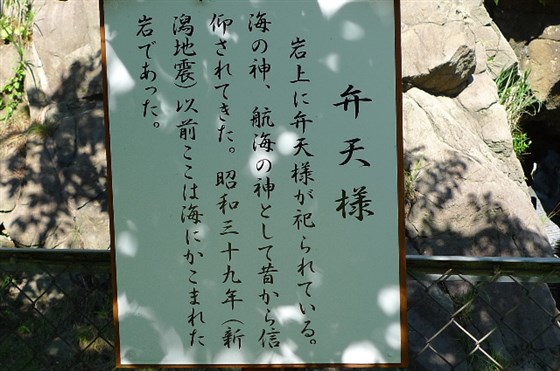 弁天様
岩上に弁天様が祀られている。
海の神、航海の神として昔から信
仰されてきた。昭和三十九年（新
潟地震）以前ここは海にかこまれた
岩であった。